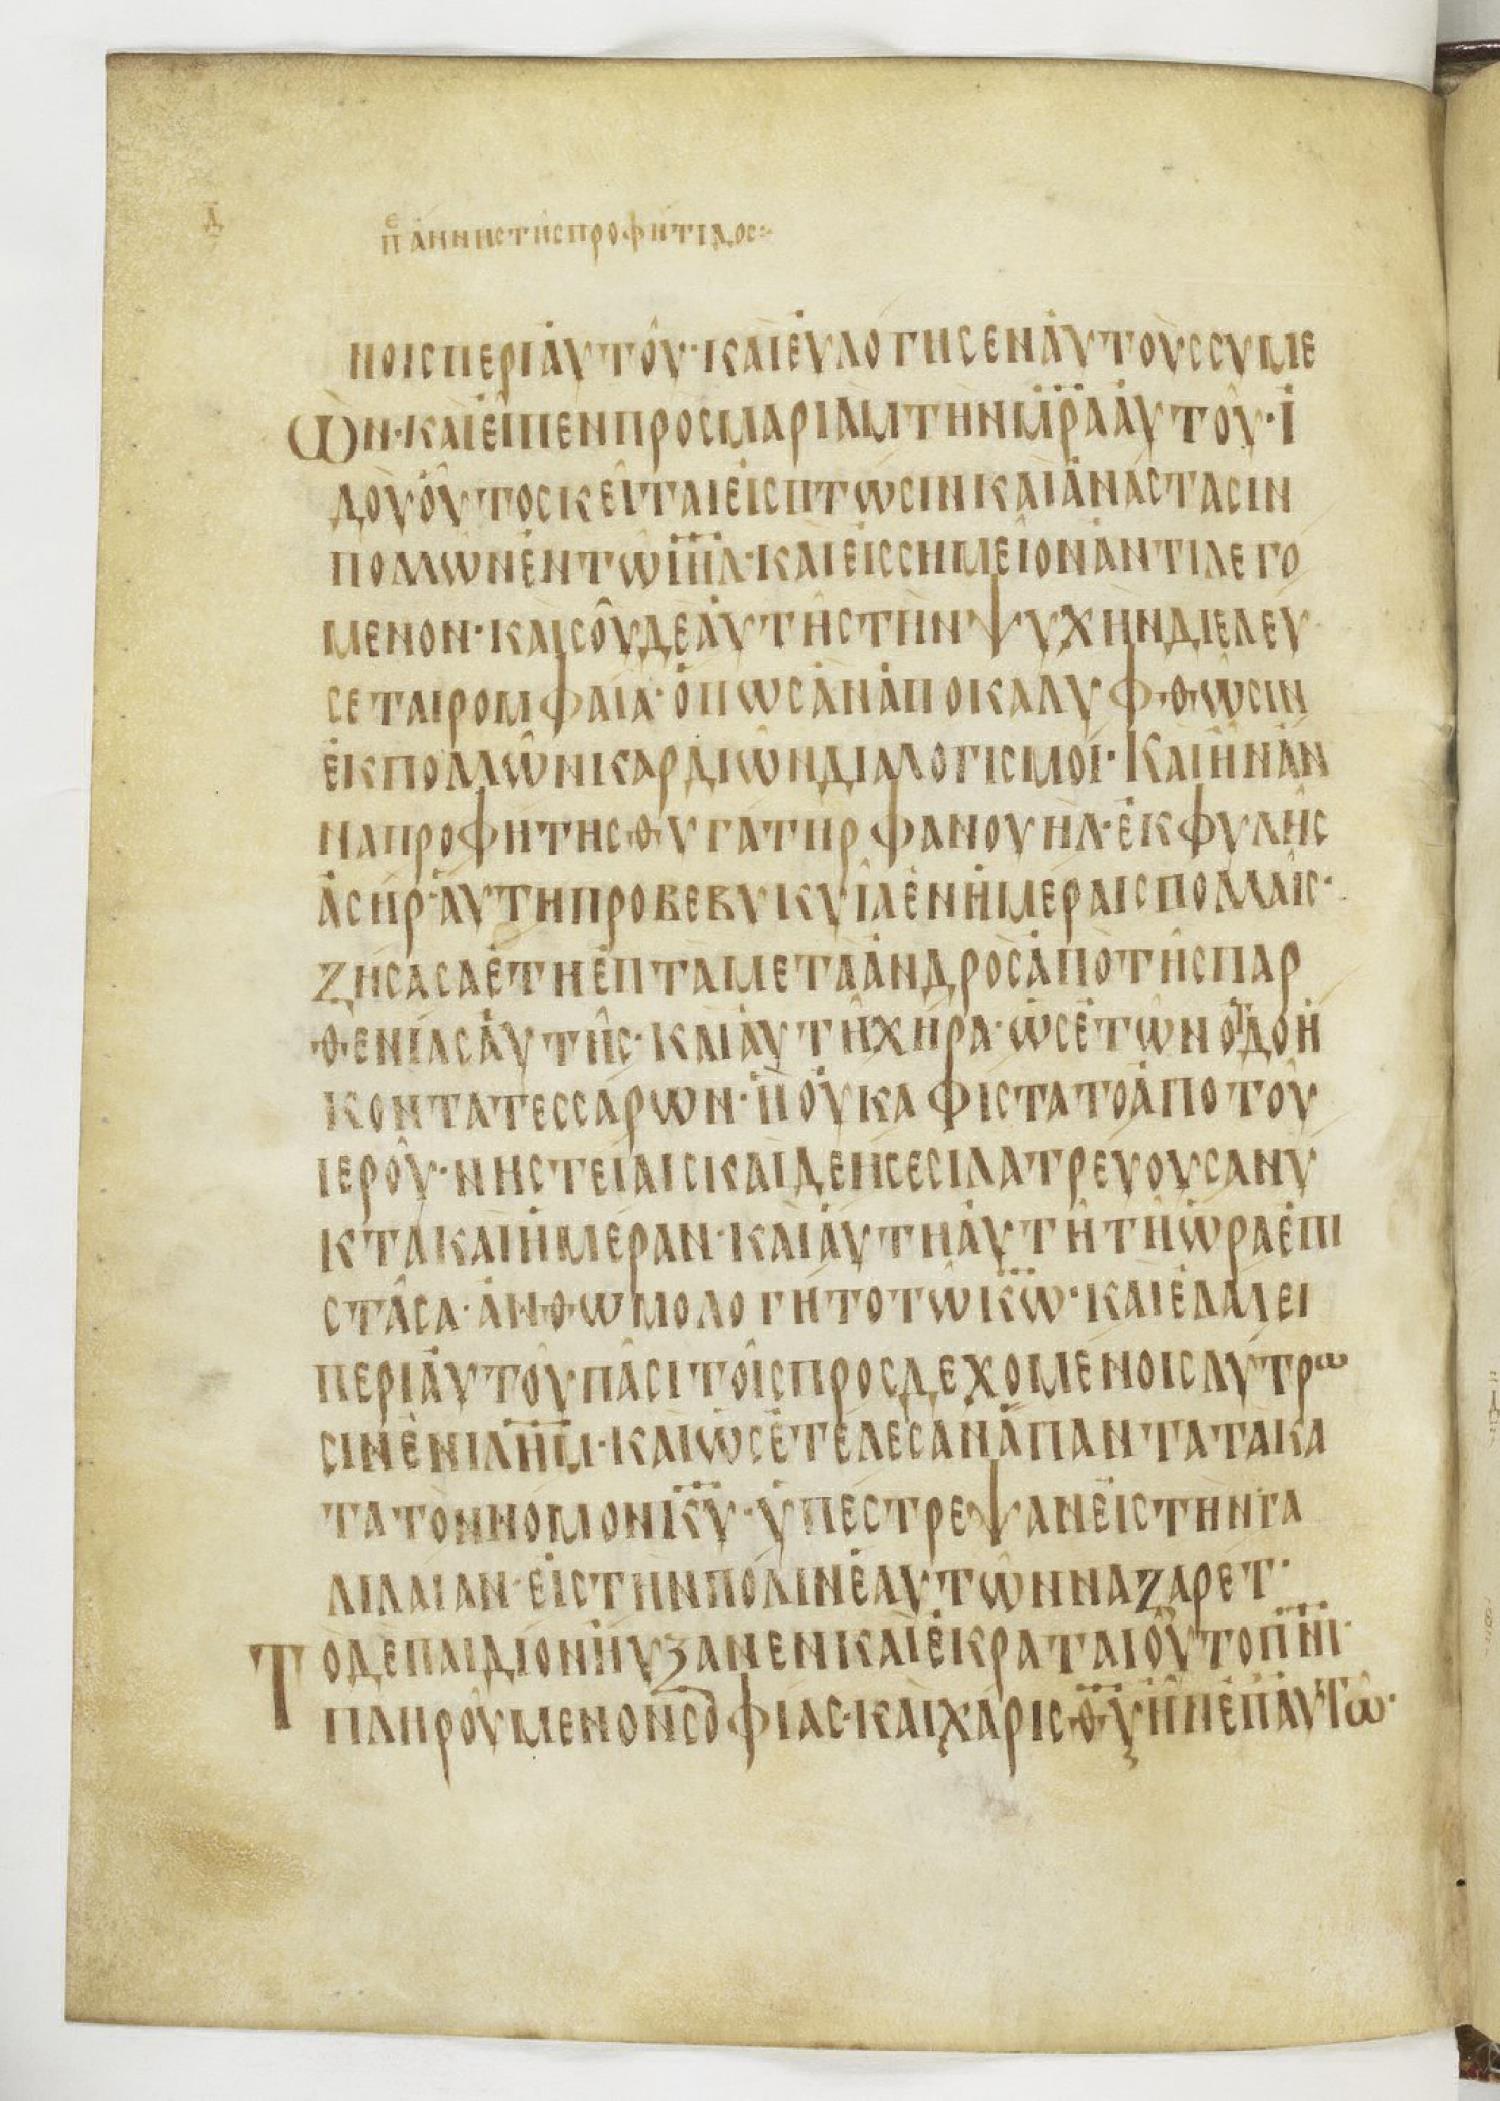 Δ
ΠΕ ΑΝΝΗΣ ΤΗΣ ΠΡΟΦΗΤΙΔΟΣ
ΝΟΙΣ ΠΕΡΙ ΑΥΤΟΥ· ΚΑΙ ΕΥΛΟΓΗΣΕΝ ΑΥΤΟΥΣ ΣΥΜΕ
ΩΝ· ΚΑΙ ΕΙΠΕΝ ΠΡΟΣ ΜΑΡΙΑΜ ΤΗΝ ΜΡΑ ΑΥΤΟΥ· Ι
ΔΟΥ ΟΥΤΟΣ ΚΕΙΤΑΙ ΕΙΣ ΠΤΩΣΙΝ ΚΑΙ ΑΝΑΣΤΑΣΙΝ
ΠΟΛΛΩΝ ΕΝ ΤΩ ΙΗΛ· ΚΑΙ ΕΙΣ ΣΗΜΕΙΟΝ ΑΝΤΙΛΕΓΟ
ΜΕΝΟΝ· ΚΑΙ ΣΟΥ ΔΕ ΑΥΤΗΣ ΤΗΝ ΨΥΧΗΝ ΔΙΕΛΕΥ
ΣΕΤΑΙ ΡΟΜΦΑΙΑ· ΟΠΩΣ ΑΝ ΑΠΟΚΑΛΥΦΘΩΣΙΝ
ΕΚ ΠΟΛΛΩΝ ΚΑΡΔΙΩΝ ΔΙΑΛΟΓΙΣΜΟΙ· ΚΑΙ ΗΝ ΑΝ
ΝΑ ΠΡΟΦΗΤΗΣ ΘΥΓΑΤΗΡ ΦΑΝΟΥΗΛ· ΕΚ ΦΥΛΗΣ
ΑΣΗΡ· ΑΥΤΗ ΠΡΟΒΕΒΥΚΥΙΑ ΕΝ ΗΜΕΡΑΙΣ ΠΟΛΛΑΙΣ·
ΖΗΣΑΣΑ ΕΤΗ ΕΠΤΑ ΜΕΤΑ ΑΝΔΡΟΣ ΑΠΟ ΤΗΣ ΠΑΡ
ΘΕΝΙΑΣ ΑΥΤΗΣ· ΚΑΙ ΑΥΤΗ ΧΗΡΑ· ΩΣ ΕΤΩΝ ΟΓΔΟΗ
ΚΟΝΤΑ ΤΕΣΣΑΡΩΝ· Η ΟΥΚ ΑΦΙΣΤΑΤΟ ΑΠΟ ΤΟΥ
ΙΕΡΟΥ· ΝΗΣΤΕΙΑΙΣ ΚΑΙ ΔΕΗΣΕΣΙ ΛΑΤΡΕΥΟΥΣΑ ΝΥ
ΚΤΑ ΚΑΙ ΗΜΕΡΑΝ· ΚΑΙ ΑΥΤΗ ΑΥΤΗ ΤΗ ΩΡΑ ΕΠΙ
ΣΤΑΣΑ· ΑΝΘΩΜΟΛΟΓΗΤΟ ΤΩ ΚΩ· ΚΑΙ ΕΛΑΛΕΙ
ΠΕΡΙ ΑΥΤΟΥ ΠΑΣΙ ΤΟΙΣ ΠΡΟΣΔΕΧΟΜΕΝΟΙΣ ΛΥΤΡΩ
ΣΙΝ ΕΝ ΙΛΗΜ· ΚΑΙ ΩΣ ΕΤΕΛΕΣΑΝ ΑΠΑΝΤΑ ΤΑ ΚΑ
ΤΑ ΤΟΝ ΝΟΜΟΝ ΚΥ· ΥΠΕΣΤΡΕΨΑΝ ΕΙΣ ΤΗΝ ΓΑ
ΛΙΛΑΙΑΝ· ΕΙΣ ΤΗΝ ΠΟΛΙΝ ΕΑΥΤΩΝ ΝΑΖΑΡΕΤ·
ΤΟ ΔΕ ΠΑΙΔΙΟΝ ΗΥΞΑΝΕΝ ΚΑΙ ΕΚΡΑΤΑΙΟΥΤΟ ΠΝΙ·
ΠΛΗΡΟΥΜΕΝΟΝ ΣΟΦΙΑΣ· ΚΑΙ ΧΑΡΙΣ ΘΥ ΗΝ ΕΠ ΑΥΤΩ·